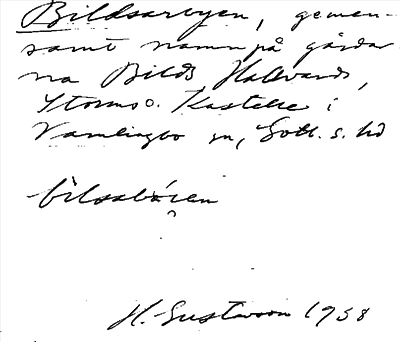 Bildsarvjen, gemen-
samt namn på gårdar
na Bilds, Hallvards,
Storms o. Kastelse i
Vamlingbo sn, Gotl. s. hd
bilssbåren
H. Gustavson 1958